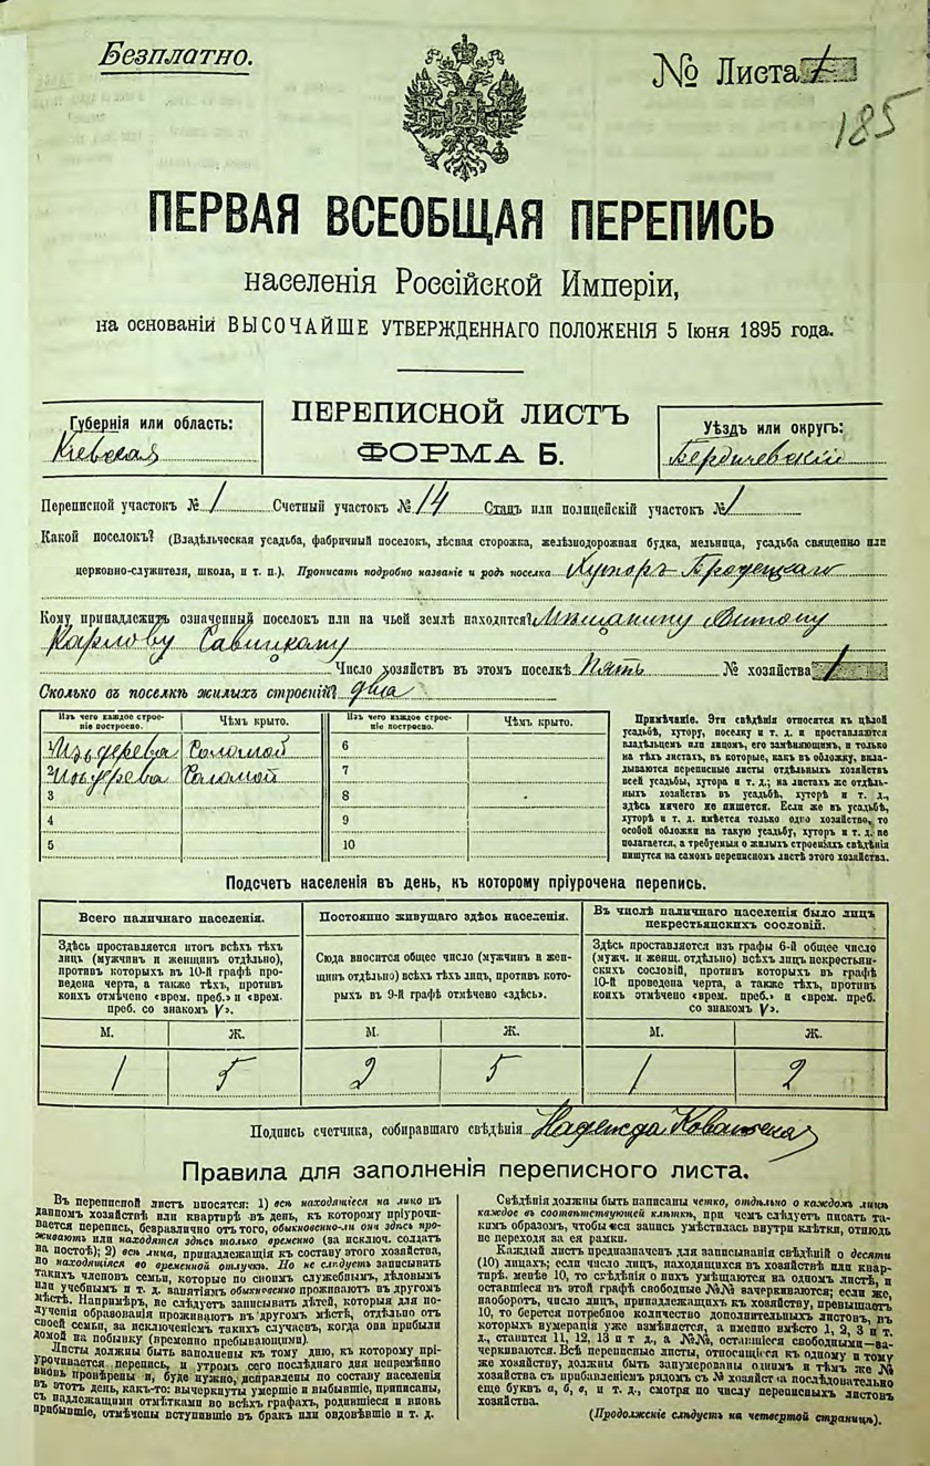 Безплатно.
№ Листа 1
185
ПЕРВАЯ ВСЕОБЩАЯ ПЕРЕПИСЬ
населенія Россійской Имперіи,
на основаніи ВЫСОЧАЙШЕ УТВЕРЖДЕННАГО ПОЛОЖЕНІЯ 5 Іюня 1895 года.
ПЕРЕПИСНОЙ ЛИСТЪ
ФОРМА Б.
Губернія или область:
Кіевская
Уѣздъ или округъ:
Бердичевскій
Переписной участокъ № 1 Счетный участокъ № 14 Станъ или полицейскій участокъ № 1
Какой поселокъ? (Владѣльческая усадьба, фабричный поселокъ, лѣсная сторожка, желѣзнодорожная будка, мельница, усадьба священно или
церковно-служителя, школа, и т. п.). Прописать подробно названіе и родъ поселка Хуторъ Бродецкаго
Кому принадлежитъ означенный поселокъ или на чьей землѣ находится? Мѣщанину Антону
Карлову Савицкому
Число хозяйствъ въ этомъ поселкѣ пять № хозяйства 1
Сколько въ поселкѣ жилыхъ строеній? два
Изъ чего каждое строе-
ніе построено.
Чѣмъ крыто.
Изъ чего каждое строе-
ніе построено.
Чѣмъ крыто.
1 Изъ дерева Соломой 6
2 Изъ дерева Соломой 7
3 8
4 9
5 10
Примѣчаніе. Эти свѣдѣнія относятся къ цѣлой
усадьбѣ, хутору, поселку и т. д. и проставляются
владѣльцемъ или лицомъ, его замѣняющимъ, и только
на тѣхъ листахъ, въ которые, какъ въ обложку, вкла-
дываются переписные листы отдѣльныхъ хозяйствъ
всей усадьбы, хутора и т. д.; на листахъ же отдѣль-
ныхъ хозяйствъ въ усадьбѣ, хуторѣ и т. д.,
здѣсь ничего не пишется. Если же въ усадьбѣ,
хуторѣ и т. д. имѣется только одно хозяйство, то
особой обложки на такую усадьбу, хуторъ и т. д. не
полагается, а требуемыя о жилыхъ строеніяхъ свѣдѣнія
пишутся на самомъ переписномъ листѣ этого хозяйства.
Подсчетъ населенія въ день, къ которому пріурочена перепись.
Всего наличнаго населенія.
Здѣсь проставляется итогъ всѣхъ тѣхъ
лицъ (мужчинъ и женщинъ отдѣльно),
противъ которыхъ въ 10-й графѣ про-
ведена черта, а также тѣхъ, противъ
коихъ отмѣчено «врем. преб.» и «врем.
преб. со знакомъ V».
Постоянно живущаго здѣсь населенія.
Сюда вносится общее число (мужчинъ и жен-
щинъ отдѣльно) всѣхъ тѣхъ лицъ, противъ кото-
рыхъ въ 9-й графѣ отмѣчено «здѣсь».
Въ числѣ наличнаго населенія было лицъ
некрестьянскихъ сословій.
Здѣсь проставляется изъ графы 6-й общее число
(мужч. и женщ. отдѣльно) всѣхъ лицъ некрестьян-
скихъ сословій, противъ которыхъ въ графѣ
10-й проведена черта, а также тѣхъ, противъ
коихъ отмѣчено «врем. преб.» и «врем. преб.
со знакомъ V».
М. Ж. М. Ж. М. Ж.
1 5 2 5 1 2
Подпись счетчика, собиравшаго свѣдѣнія Надежда
Правила для заполненія переписного листа.
Въ переписной листъ вносятся: 1) всѣ находящіеся на лицо въ
данномъ хозяйствѣ или квартирѣ въ день, къ которому пріурочи-
вается перепись, безразлично отъ того, обыкновенно-ли они здѣсь про-
живаютъ или находятся здѣсь только временно (за исключ. солдатъ
на постоѣ); 2) всѣ лица, принадлежащія къ составу этого хозяйства,
но находящіеся во временной отлучкѣ. Но не слѣдуетъ записывать
такихъ членовъ семьи, которые по своимъ служебнымъ, дѣловымъ
или учебнымъ и т. д. занятіямъ обыкновенно проживаютъ въ другомъ
мѣстѣ. Напримѣръ, не слѣдуетъ записывать дѣтей, которыя для по-
лученія образованія проживаютъ въ другомъ мѣстѣ, отдѣльно отъ
своей семьи, за исключеніемъ такихъ случаевъ, когда они прибыли
домой на побывку (временно пребывающими).
Листы должны быть заполнены къ тому дню, къ которому прі-
урочивается перепись, и утромъ сего послѣдняго дня непремѣнно
вновь провѣрены и, буде нужно, исправлены по составу населенія
въ этотъ день, какъ-то: вычеркнуты умершіе и выбывшіе, приписаны,
съ надлежащими отмѣтками во всѣхъ графахъ, родившіеся и вновь
прибывшіе, отмѣчены вступившіе въ бракъ или овдовѣвшіе и т. д.
Свѣдѣнія должны быть написаны четко, отдѣльно о каждомъ лицѣ
каждое въ соотвѣтствующей клѣткѣ, при чемъ слѣдуетъ писать та-
кимъ образомъ, чтобы вся запись умѣстилась внутри клѣтки, отнюдь
не переходя за ея рамки.
Каждый листъ предназначенъ для записыванія свѣдѣній о десяти
(10) лицахъ; если число лицъ, находящихся въ хозяйствѣ или квар-
тирѣ, менѣе 10, то свѣдѣнія о нихъ умѣщаются на одномъ листѣ, и
оставшіеся въ этой графѣ свободные №№ вачеркиваются; если же,
наоборотъ, число лицъ, принадлежащихъ къ хозяйству, превышаетъ
10, то берется потребное количество дополнительныхъ листовъ, въ
которыхъ нумерація уже измѣняется, а именно вмѣсто 1, 2, 3 и т.
д., ставится 11, 12, 13 и т д., а №№, оставшіеся свободными—за-
черкиваются. Всѣ переписные листы, относящіеся къ одному и тому
же хозяйству, должны быть занумерованы однимъ и тѣмъ же №
хозяйства съ прибавленіемъ рядомъ съ № хозяйства послѣдовательно
еще буквъ а, б, в, и т. д., смотря по числу переписныхъ листовъ
хозяйства.
(Продолженіе слѣдуетъ на четвертой страницѣ).